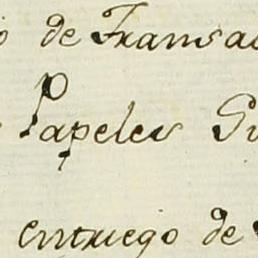 de Transac
Papeles Gu
entriego de